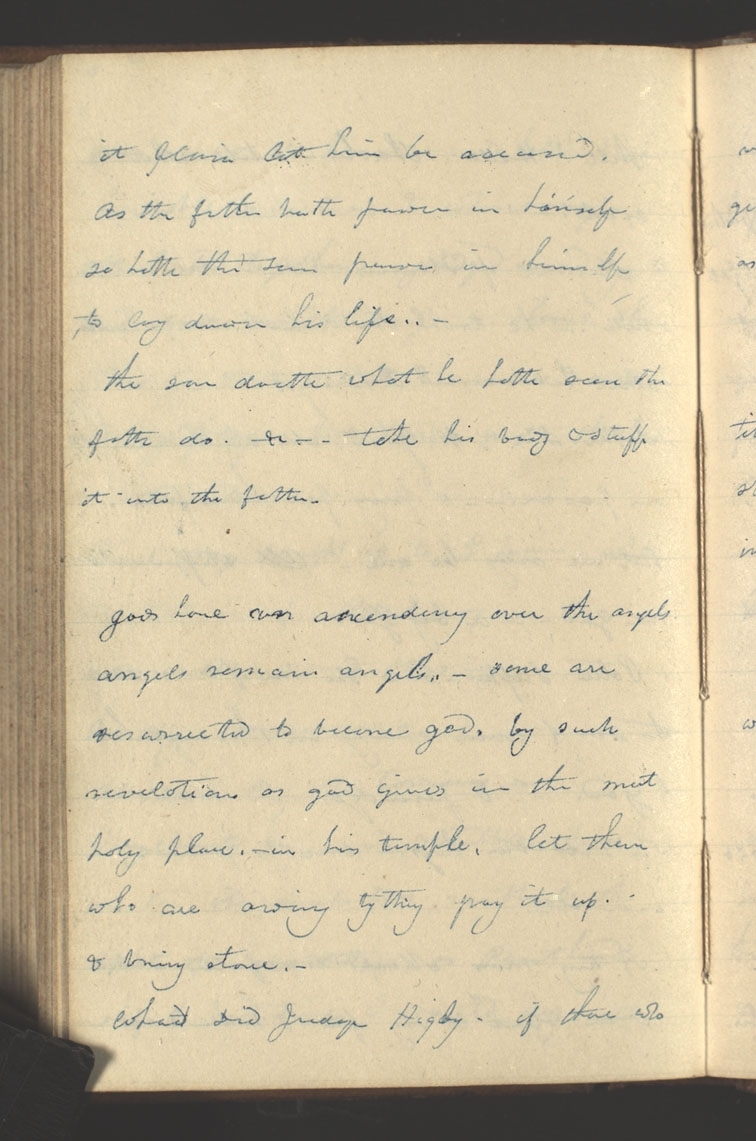 it plain let him be accursd.
As the father hath power in himself
so hath the son power in himself
to lay down his life..—
the son doeth what he hath seen the
fath do. — &— - take his body & stuff
it into the father.
gods have an ascendency over the angels
angels remain angels.. — some are
resurrected to become god. by such
revelations as god gives in the most
holy place. — in his temple. let them
who are owing tything pay it up. -
& bring stone. —
What did Judge Higby - if those who
w
ge
as
ti
st
in
w